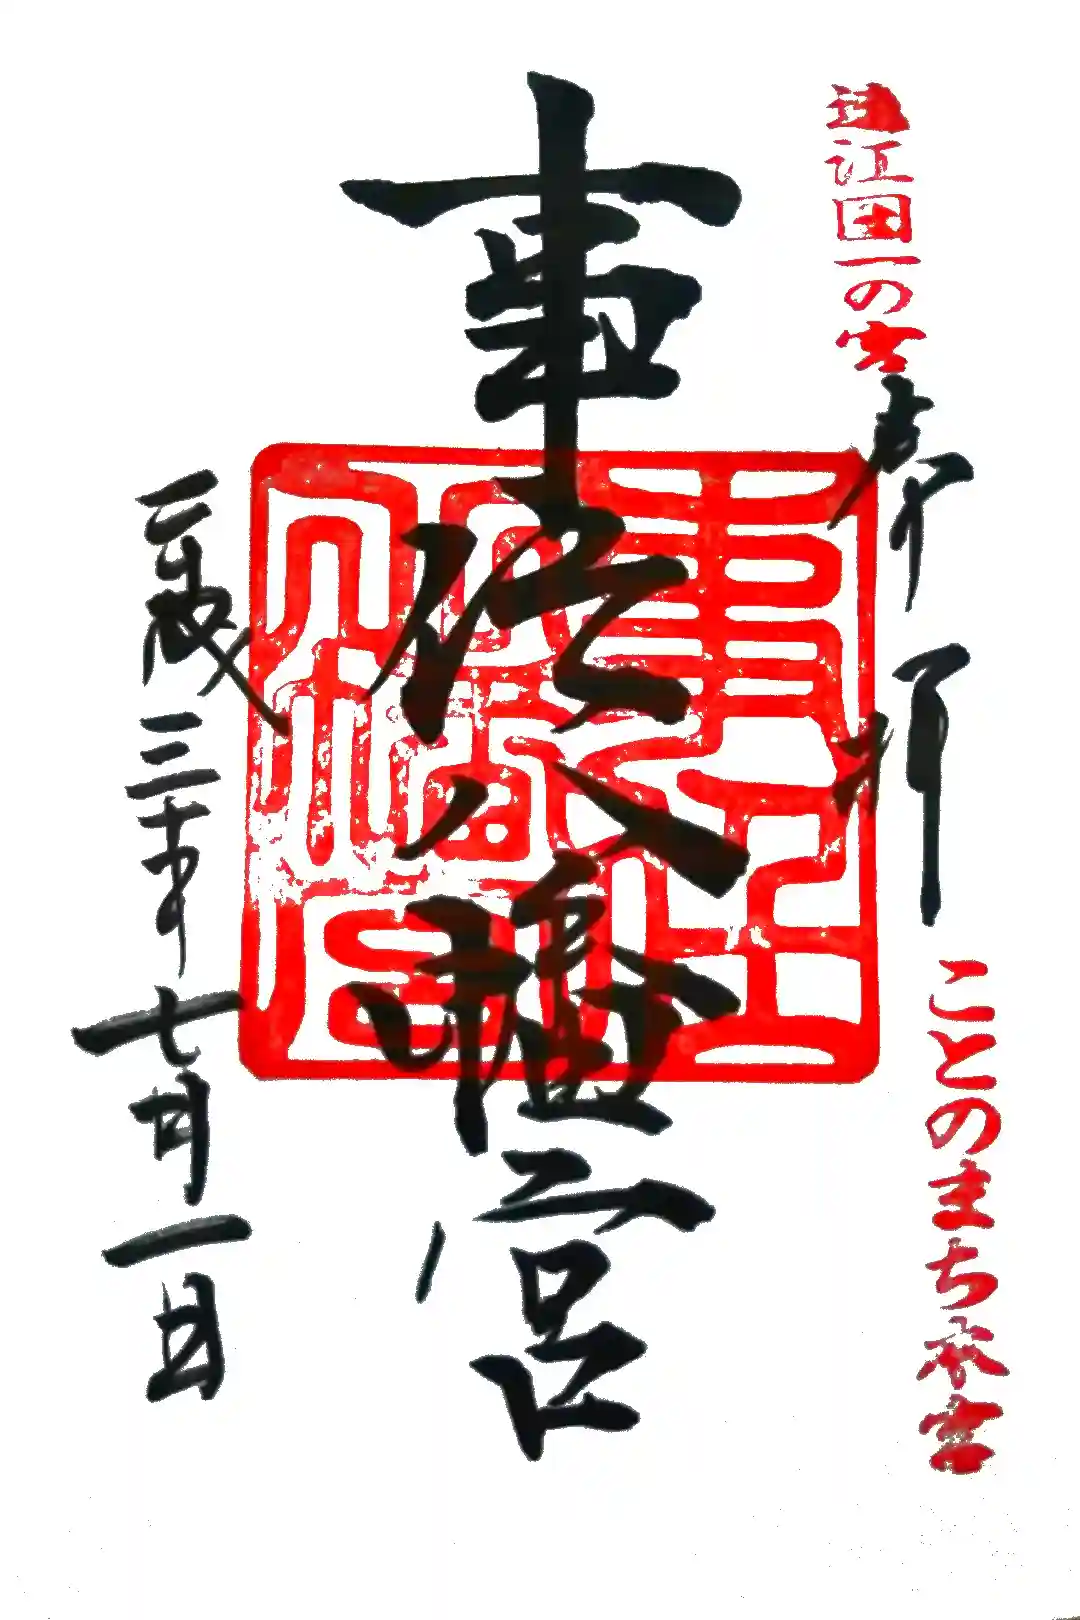 遠江国一の宮
奉拝
ことのまち本宮
事任八幡宮
平成三十年七月一日